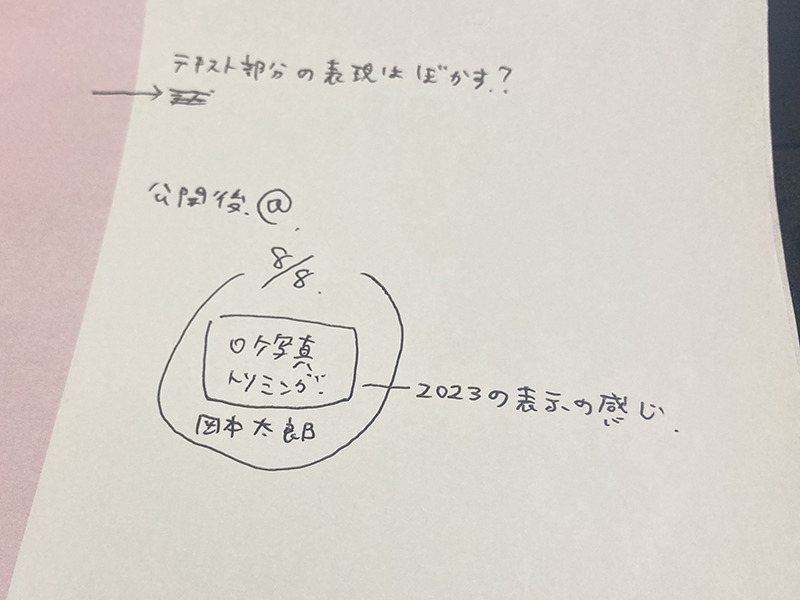 テキスト部分の表現はぼかす?
公開後@
8/8.
ロケ写真
トリミング.
2023の表示の感じ.
岡本太郎